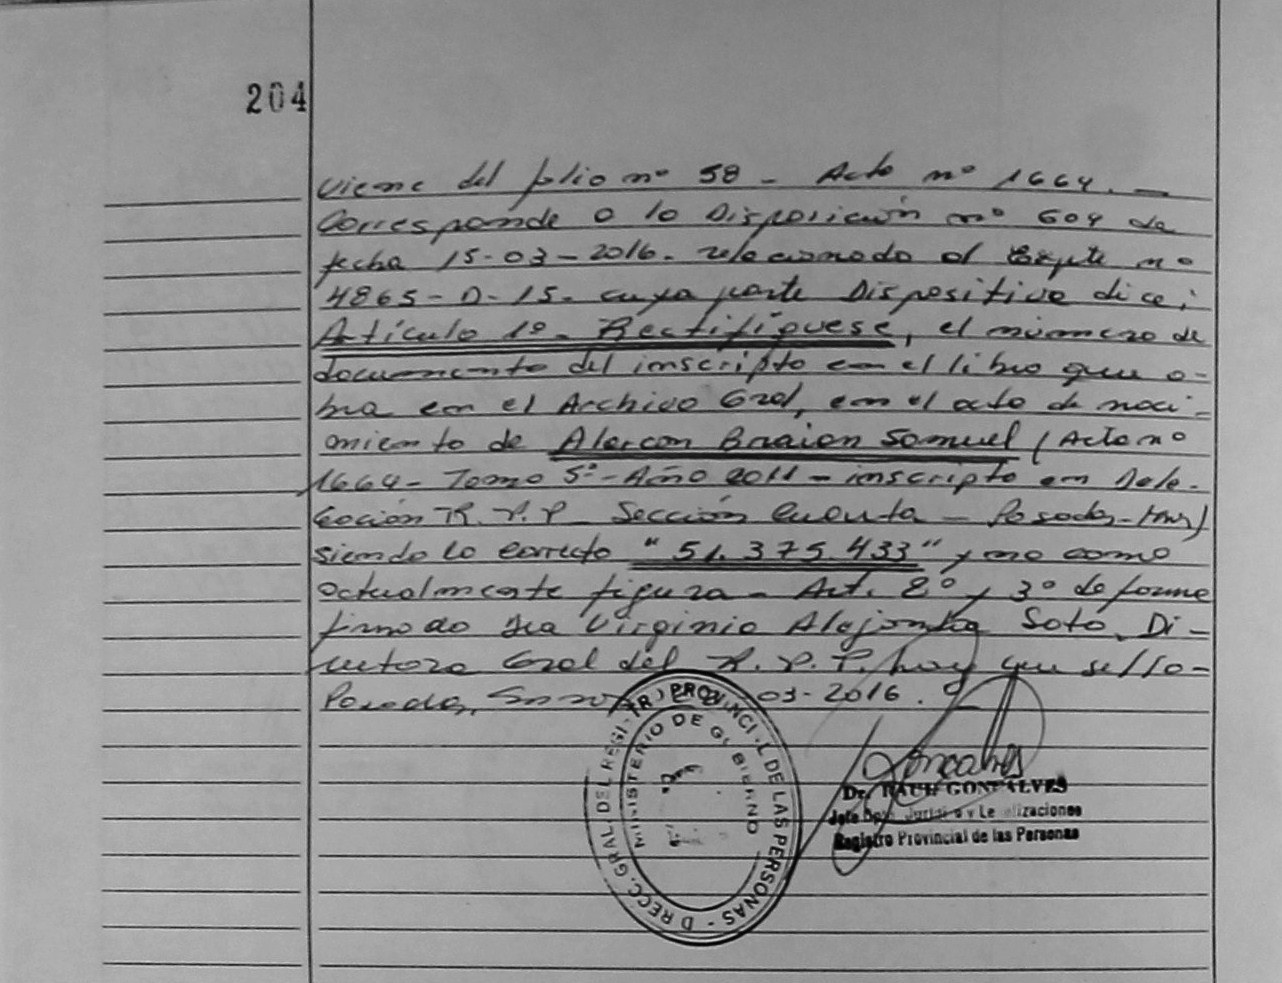 204
Viene del folio nº 58 - Acta nº 1664. -
Corresponde a la Disposición nº 604 de
fecha 15-03-2016. relacionado al Expte nº
4865-D-15. cuya parte Dispositiva dice:
Artículo 1º- Rectifíquese, el número de
documento del inscripto en el libro que o-
bra en el Archivo Gral, en el acta de naci-
miento de Alarcon Braian Samuel (Acta nº
1664- Tomo 5º- Año 2011 - inscripto en Dele-
gación R.P.P. Sección Cuenta - Posadas-Mnes)
siendo lo correcto "51.375.433" y no como
actualmente figura - Art. 2º y 3º de forma
firmado Dra Virginia Alejandra Soto, Di-
rectora Gral del R.P.P. hay que sello-
Posadas, 03-2016.
DIRECC. GRAL. DEL REGISTRO PROVINCIAL DE LAS PERSONAS -
MINISTERIO DE GOBIERNO
Goncalves
Dr. RAUL GONCALVES
Jefe Dpto. Jurídico y Legalizaciones
Registro Provincial de las Personas